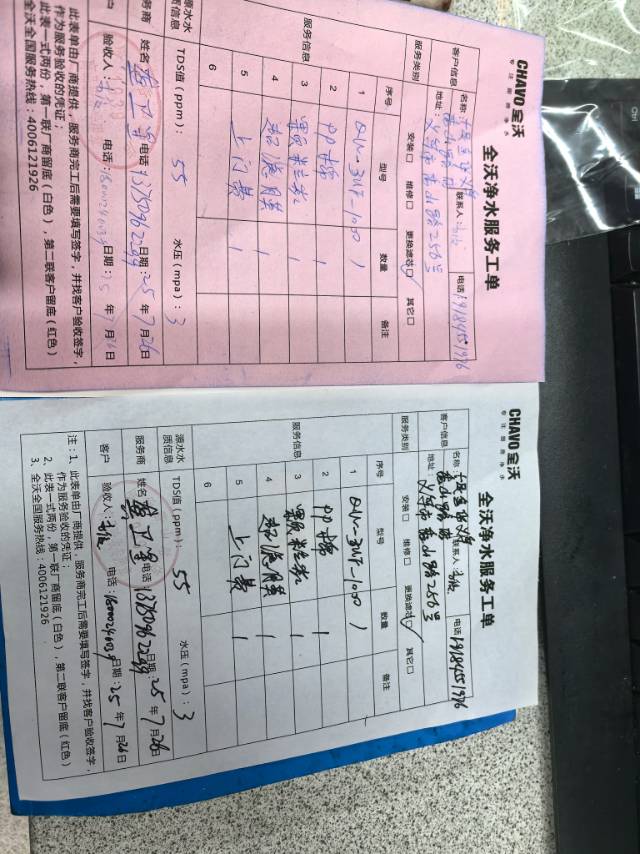 CHAVO 全沃
专注厨房净水
全沃净水服务工单
客户信息
名称：
联系人：
电话
地址：义乌市 256号
服务类别
安装□ 维修□ 更换滤芯☑ 其它□
服务信息
序号 型号 数量 备注
1 QW-3UF-1000 1
2 PP棉 1
3 颗粒炭 1
4 超滤膜 1
5 上门费 1
6
源水水质信息
TDS值（ppm）：55 水压（mpa）：3
服务商 姓名 电话 日期：25年7月26日
客户 验收人： 电话： 日期：25年7月26日
此表单由厂商提供，服务商完工后需要填写签字，并找客户验收签字，
作为服务验收的凭证；
此表一式两份，第一联厂商留底（白色），第二联客户留底（红色）
全沃全国服务热线：4006121926
CHAVO 全沃
专注厨房净水
全沃净水服务工单
客户信息
名称：
联系人：
电话
地址：义乌市 256号
服务类别
安装□ 维修□ 更换滤芯☑ 其它□
服务信息
序号 型号 数量 备注
1 QW-3UF-1000 1
2 PP棉 1
3 颗粒炭 1
4 超滤膜 1
5 上门费 1
6
源水水质信息
TDS值（ppm）：55 水压（mpa）：3
服务商 姓名 电话 日期：25年7月26日
客户 验收人： 电话： 日期：25年7月26日
注：1、此表单由厂商提供，服务商完工后需要填写签字，并找客户验收签字，
作为服务验收的凭证；
2、此表一式两份，第一联厂商留底（白色），第二联客户留底（红色）
3、全沃全国服务热线：4006121926
Ctrl